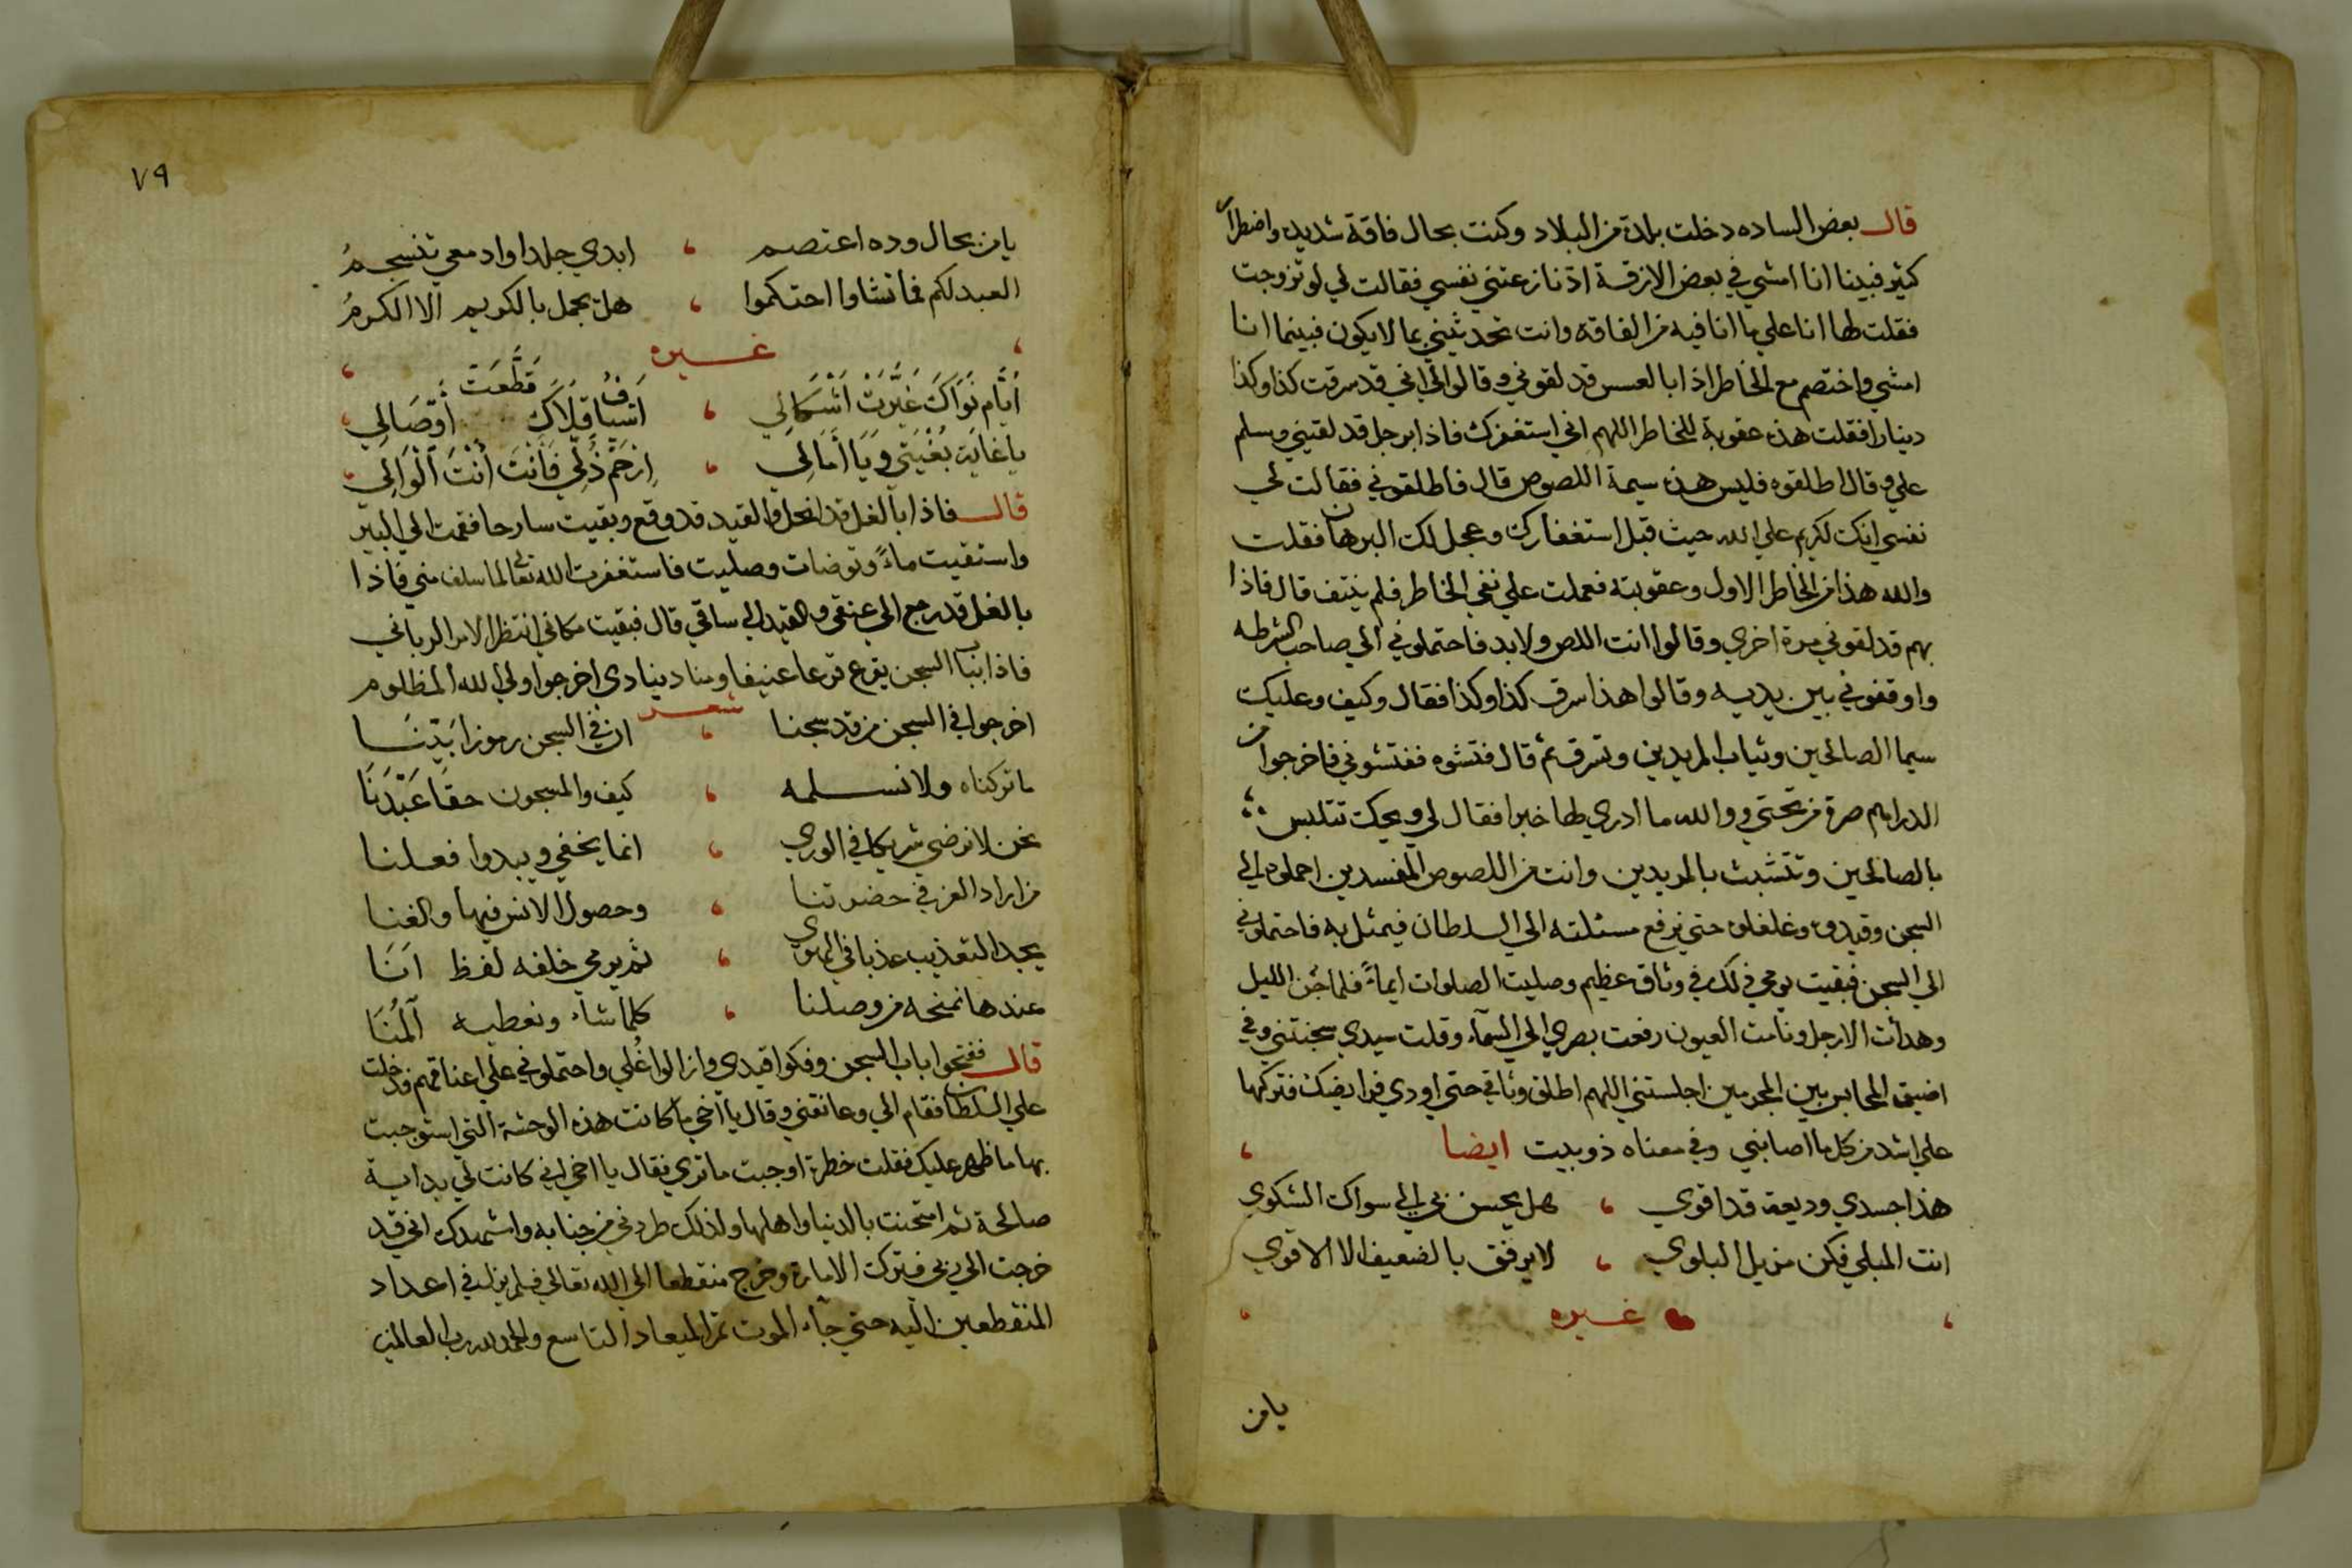 قال بعض الساده دخلت بلدة من البلاد وكنت بحال فاقة شديده واضطرار
كثير فبينا انا امشي في بعض الازقة اذ نازعتني نفسي فقالت لي لو تزوجت
فقلت لها انا علي ما انا فيه من الفاقة وانت تحدثيني بما لا يكون فبينما انا
امشي واختصم مع الخاطر اذا بالعسس قد لقوني وقالوا لي انني قد سرقت كذا وكذا
دينارا فقلت هذه عقوبة للخاطر اللهم اني استغفرك فاذا برجل قد لقيني وسلم
علي وقال اطلقوه فليس هذه سيمة اللصوص قال فاطلقوني فقالت لي
نفسي انك لكريم علي الله حيث قبل استغفارك وعجل لك البرهان فقلت
والله هذا من الخاطر الاول وعقوبته فعملت علي نفي الخاطر فلم ينتف قال فاذا
بهم قد لقوني مرة اخري وقالوا انت اللص ولا بد فاحتملوني الي صاحب الشرطه
واوقفوني بين يديه وقالوا هذا سرق كذا وكذا فقال وكيف وعليك
سيما الصالحين وثياب المريدين وتسرق ثم قال فتشوه ففتشوني فاخرجوا من
الدراهم صرة من تحتي ووالله ما ادري لها خبرا فقال لي ويحك تتلبس
بالصالحين وتتشبث بالمريدين وانت من اللصوص المفسدين احملوه الي
السجن وقيدوه وغلغلوه حتي نرفع مسئلته الي السلطان فيمثل به فاحتملوني
الي السجن فبقيت يومي ذلك في وثاق عظيم وصليت الصلوات ايماءً فلما جُن الليل
وهدأت الارجل ونامت العيون رفعت بصري الي السماء وقلت سيدي سجنتني وفي
اضيق المحابس بين المجرمين اجلستني اللهم اطلق وثاقي حتي اودي فرايضك فتركها
علي اشد من كل ما اصابني وفي معناه ذوبيت ايضا
هذا جسدي وديعة قد اقوي ، هل يحسن بي الي سواك الشكوي
انت المبلي فكن مزيل البلوي ، لا يرفق بالضعيف الا الاقوي
غيره
يا من
٧٩
يا من بحال وده اعتصم ، ابدي جلدا وادمعي تنسجمُ
العبد لكم فما تشاوا احتكموا ، هل يجمل بالكريم الا الكرمُ
غيره
أيَّام نَوَاكَ غَيَّرَتْ اشْكَالِي ، اشْيَاف قِلَاكَ قَطَّعَتْ أوْصَالِي
يا غاية بُغْيَتِي وَيَا أَمَالِي ، اِرْحَمْ ذُلِّي فَأَنْتَ أنْتَ الْوَالِي
قال فاذا بالغل قد انحل والقيد قد وقع وبقيت سارحا فقمت الي البير
واستقيت ماءً وتوضات وصليت فاستغفرت الله تعالى لما سلف مني فاذا
بالغل قد رجع الي عنقي والقيد الي ساقي قال فبقيت مكاني انتظر الامر الرباني
فاذا بباب السجن يقرع قرعا عنيفا ومنادي ينادي اخرجوا ولي الله المظلوم
شعر
اخرجوا في السجن من قد سجنا ، ان في السجن رموزا بَيْنَنَا
ما تركناه ولا نسلمه ، كيف والمسجون حقا عَبْدَنَا
نحن لا نرضي شريكا في الوري ، انما يخفي ويبدوا فعلنا
من اراد العز في حضرتنا ، وحصول الانس فيها والغنا
يجد التعذيب عذبا في الهوي ، ثم يرمي خلفه لفظ اَنَا
عندها نمنحه من وصلنا ، كلما شاء ونعطيه آلمُنَا
قال ففتحوا باب السجن وفكوا قيدي وازالوا غُلي واحتملوني علي اعناقهم فدخلت
علي السلطان فقام الي وعانقني وقال يا أخي ما كانت هذه الوحشة التي استوجبت
بها ما ظهر عليك فقلت خطرة اوجبت ما تري فقال يا اخي اني كانت لي بداية
صالحة ثم امتحنت بالدنيا واهلها ولذلك طردني من جنابه واشهدك اني قد
خرجت الي ربي فترك الامارة وخرج منقطعا الي الله تعالي فلم يزل في اعداد
المنقطعين اليه حتي جاء الموت تم الميعاد التاسع والحمد لله رب العالمين